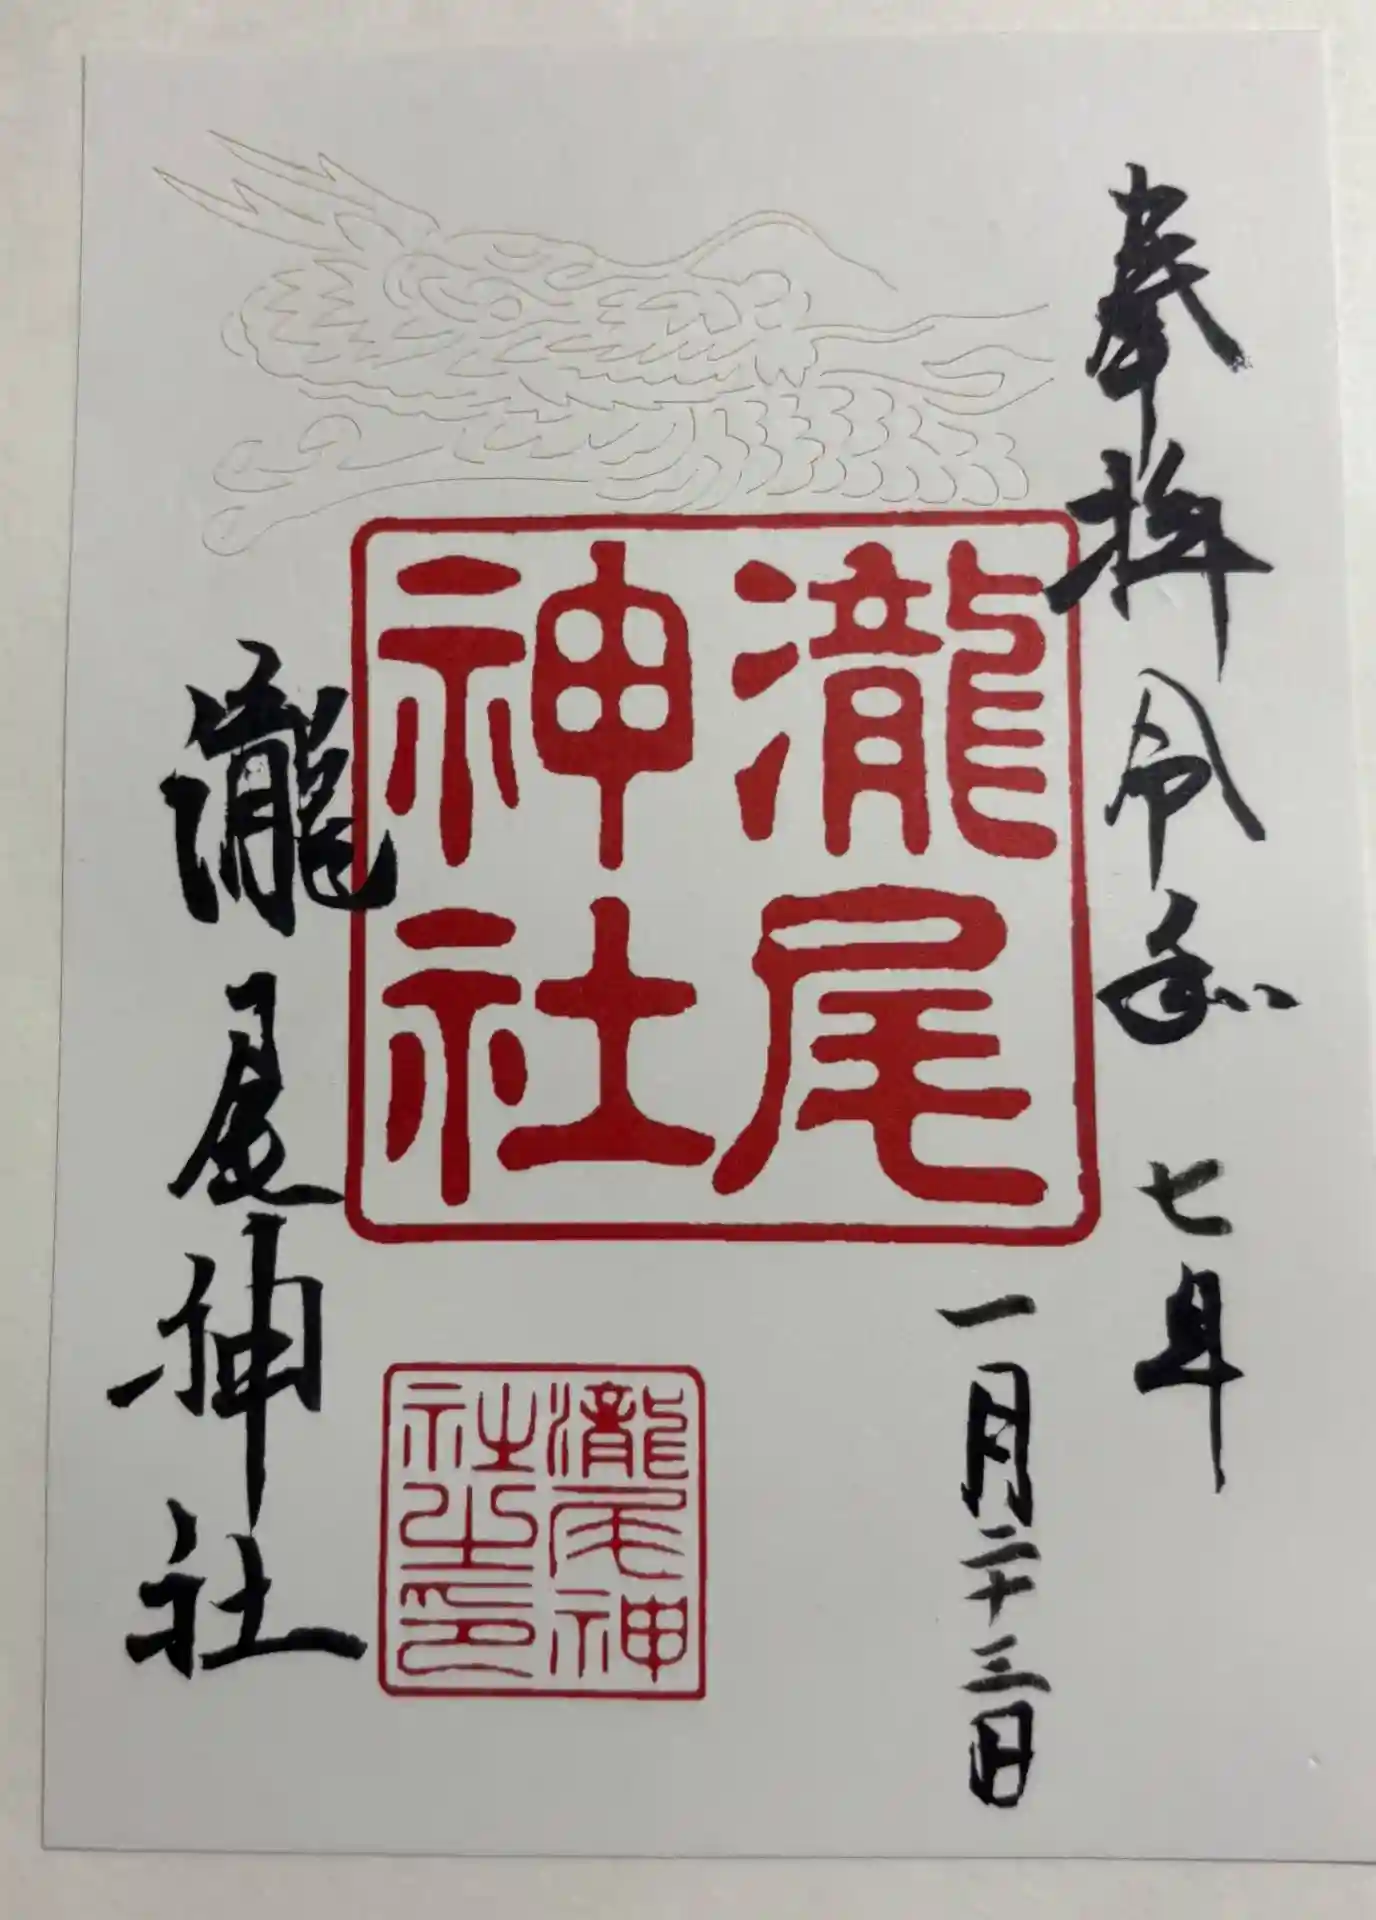 奉拝
令和七年
一月二十三日
瀧尾
神社
瀧尾神
社之印
瀧尾神社